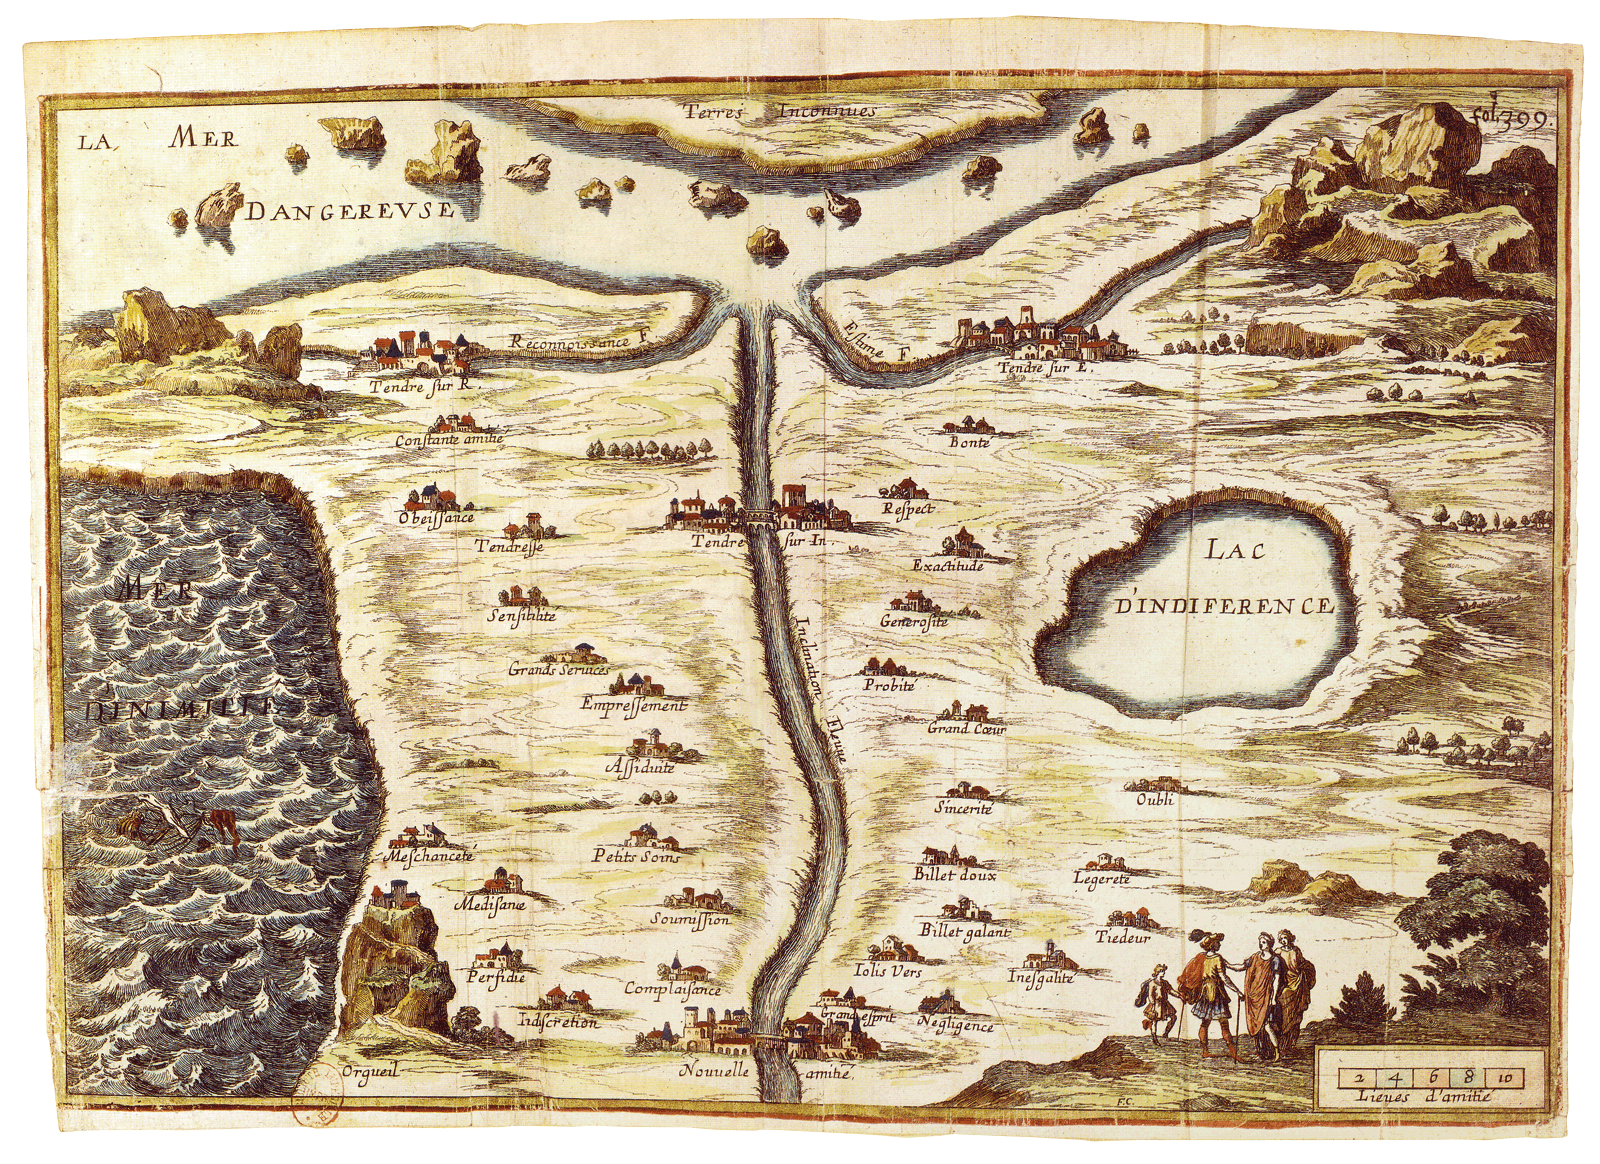 Terres Inconnues
fol. 399.
LA MER
DANGEREVSE
Reconnoissance F
Estime F.
Tendre sur R.
Tendre sur E.
Constante amitié
Bonté
Obeissance
Respect
Tendresse
Tendre sur In.
Exactitude
LAC
D'INDIFERENCE
MER
D'INIMITIE
Sensibilité
Generosité
Inclination Fleuve
Grands Services
Probité
Empressement
Grand Cœur
Assiduité
Sincerité
Oubli
Meschanceté
Petits Soins
Billet doux
Legereté
Medisance
Soumission
Billet galant
Tiedeur
Perfidie
Complaisance
Iolis Vers
Inesgalité
Indiscretion
Grand esprit
Negligence
Orgueil
Nouvelle amitié.
2 4 6 8 10
Lieues d'amitié
F.C.